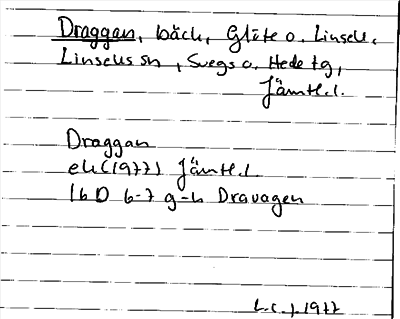 Draggan, bäck, Glöte o. Linsell,
Linsells sn, Svegs o. Hede tg,
Jämtl.l.
Draggan
ek (1977) Jämtl.l.
16 D 6-7 g-h Dravagen
L.C.J. 1977